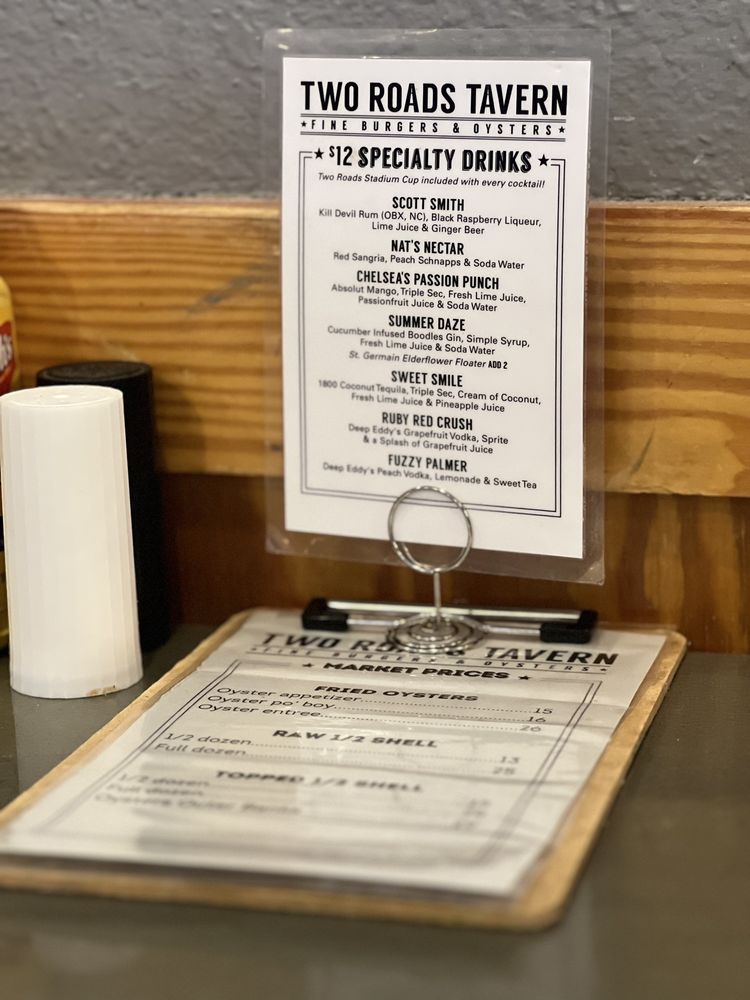 TWO ROADS TAVERN
★FINE BURGERS & OYSTERS★
★ $12 SPECIALTY DRINKS ★
Two Roads Stadium Cup included with every cocktail!
SCOTT SMITH
Kill Devil Rum (OBX, NC), Black Raspberry Liqueur,
Lime Juice & Ginger Beer
NAT'S NECTAR
Red Sangria, Peach Schnapps & Soda Water
CHELSEA'S PASSION PUNCH
Absolut Mango, Triple Sec, Fresh Lime Juice,
Passionfruit Juice & Soda Water
SUMMER DAZE
Cucumber Infused Boodles Gin, Simple Syrup,
Fresh Lime Juice & Soda Water
St. Germain Elderflower Floater ADD 2
SWEET SMILE
1800 Coconut Tequila, Triple Sec, Cream of Coconut,
Fresh Lime Juice & Pineapple Juice
RUBY RED CRUSH
Deep Eddy's Grapefruit Vodka, Sprite
& a Splash of Grapefruit Juice
FUZZY PALMER
Deep Eddy's Peach Vodka, Lemonade & Sweet Tea
TWO TAVERN
★FINE BURGERS & OYSTERS★
★ MARKET PRICES ★
FRIED OYSTERS
Oyster appetizer 15
Oyster po' boy 16
Oyster entree 26
RAW 1/2 SHELL
1/2 dozen 13
Full dozen 25
TOPPED 1/2 SHELL
1/2 dozen
Full dozen